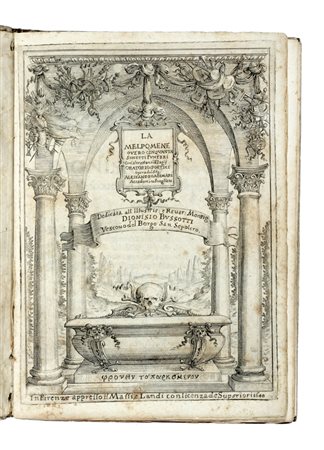 LA
MELPOMENE
OVERO CINQVANTA
SONETTI FVNEBRI
ORATORIO POETICO
opera del Sig.
ALESSANDRO ADIMARI
Dedicata all Illustris. e Reuer. Monsig.
DIONISIO BVSSOTTI
Vescouo del Borgo San Sepolcro.
In Firenze appresso il Massi e Landi con licenza de Superiori 1640